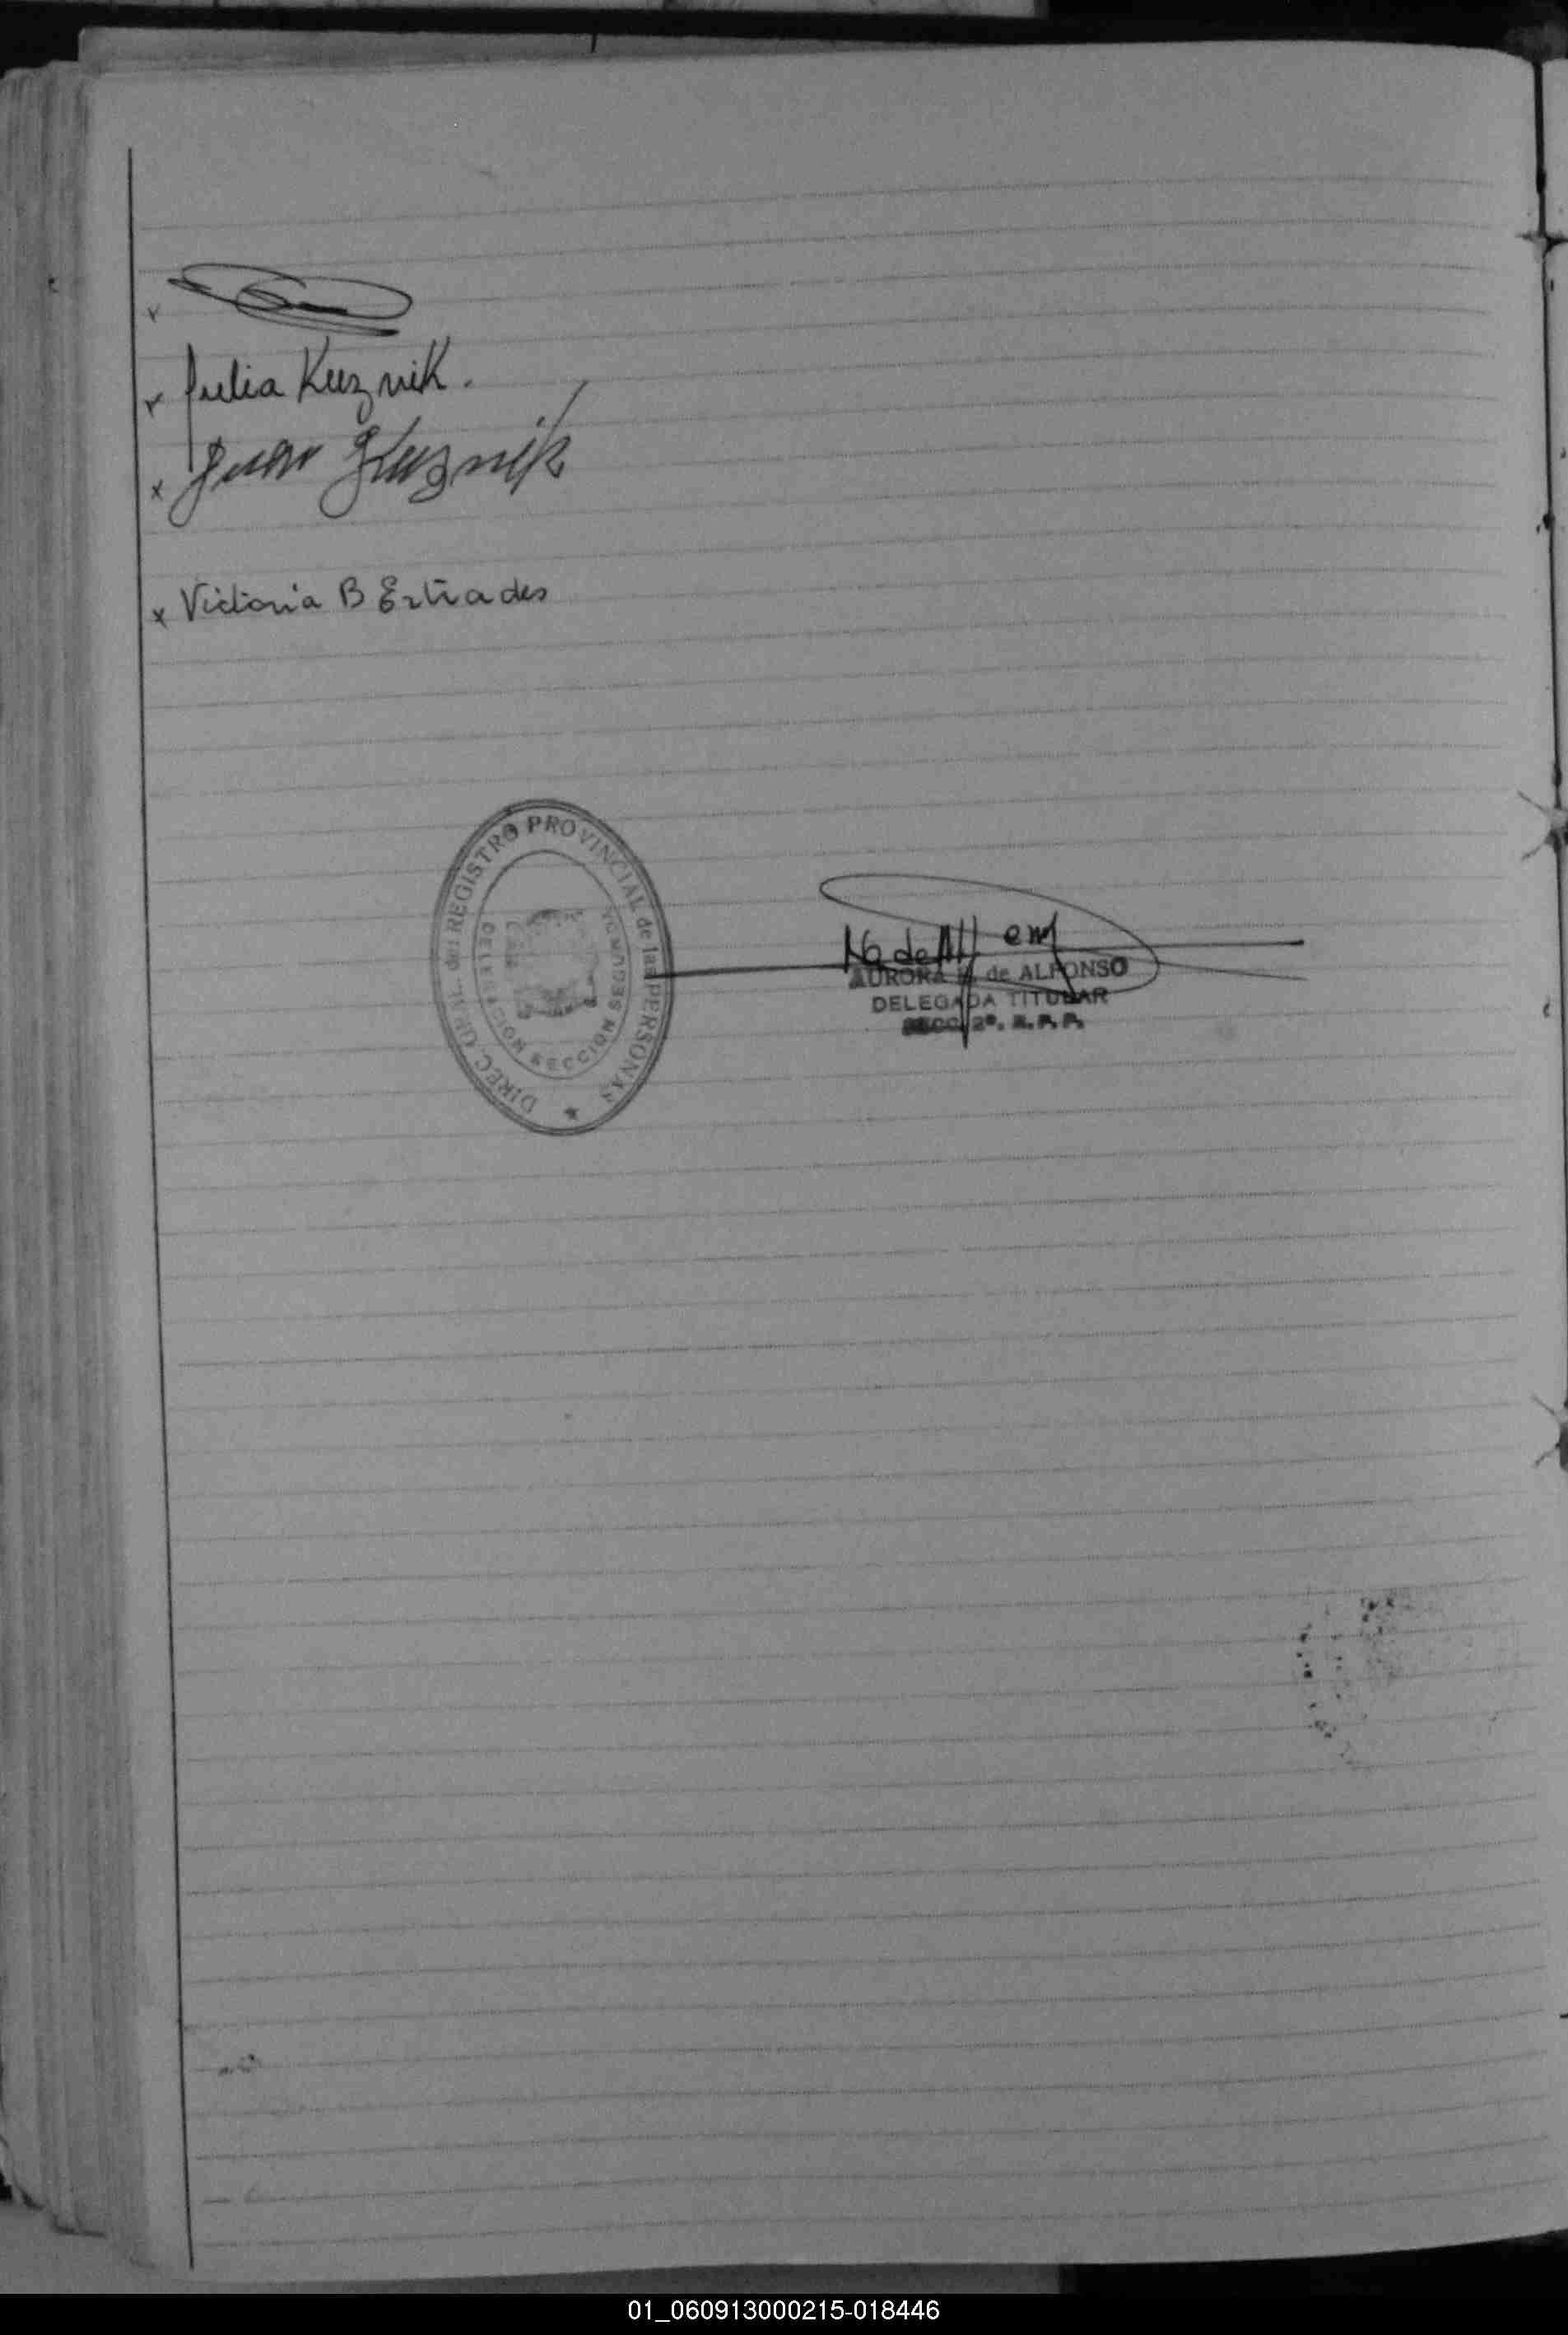 x
x Julia Kuznik.
x Juan Kuznik
x Victoria B Estrades
DIREC. GRAL. del REGISTRO PROVINCIAL de las PERSONAS
DELEGACION SECCION SEGUNDA
AURORA de ALFONSO
DELEGADA TITULAR
SECC. 2ª. R. P. P.
01_060913000215-018446